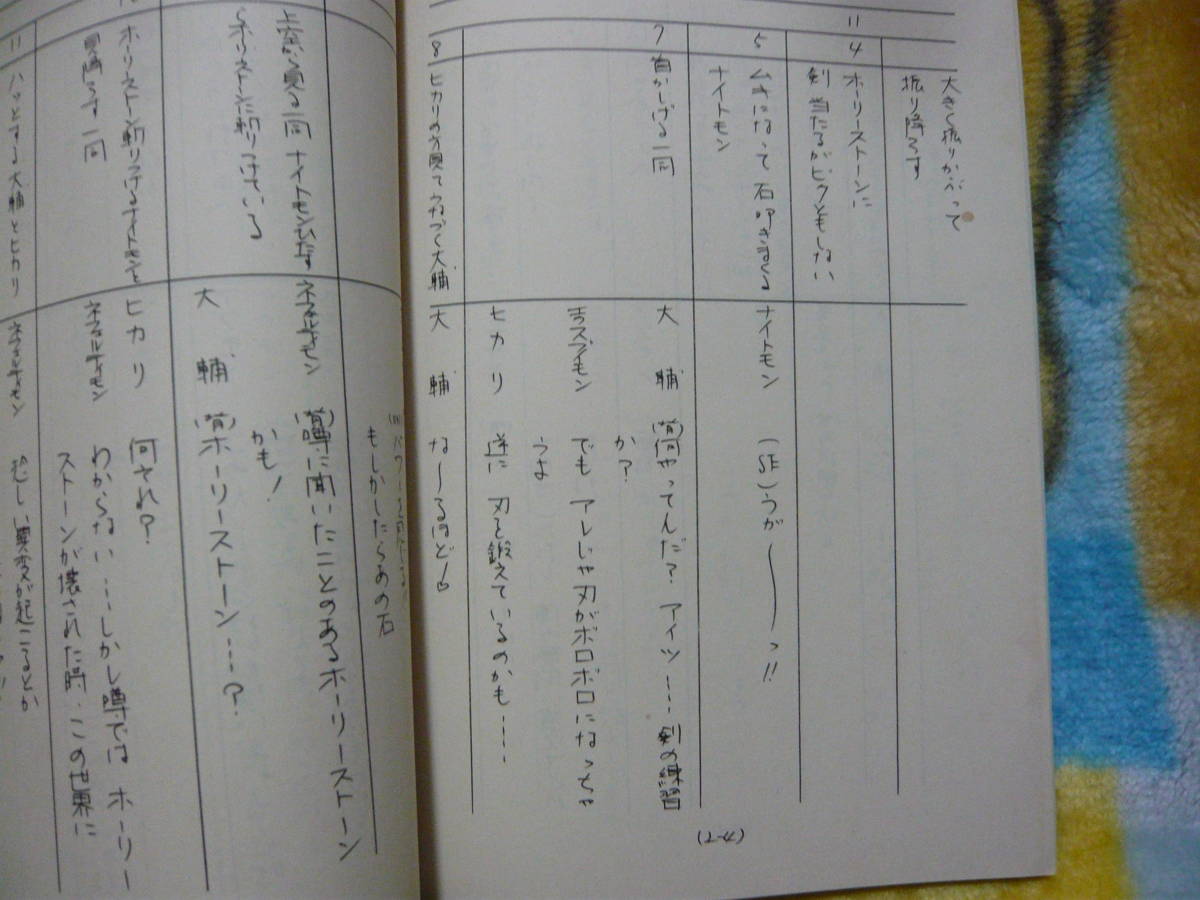 大きく振りかぶって
振り降ろす
11
4
ホーリーストーンに
剣当たるがビクともしない
5
ムキになって石叩きまくる
ナイトモン
ナイトモン
(SE)うが〜〜〜っ!!
7
首かしげる一同
大輔
(背)何やってんだ? アイツ……剣の練習
か?
エクスブイモン
でも アレじゃ刃がボロボロになっちゃ
うよ
ヒカリ
逆に 刃を鍛えているのかも……
8
ヒカリの方見てうなづく大輔
大輔
な〜るほど!
(2-4)
もしかしたらあの石
上空から見る一同 ナイトモンひたすら
ホーリーストーンに斬りつけている
ネフェルティモン
(背)噂に聞いたことのあるホーリーストーン
かも!
大輔
(背)ホーリーストーン……?
ホーリーストーン斬りつけるナイトモンを
見降ろす一同
ヒカリ
何それ?
ネフェルティモン
わからない……しかし噂では ホーリー
ストーンが壊された時、この世界に
11
ハッとする大輔とヒカリ
ネフェルティモン
恐しい異変が起こるとか